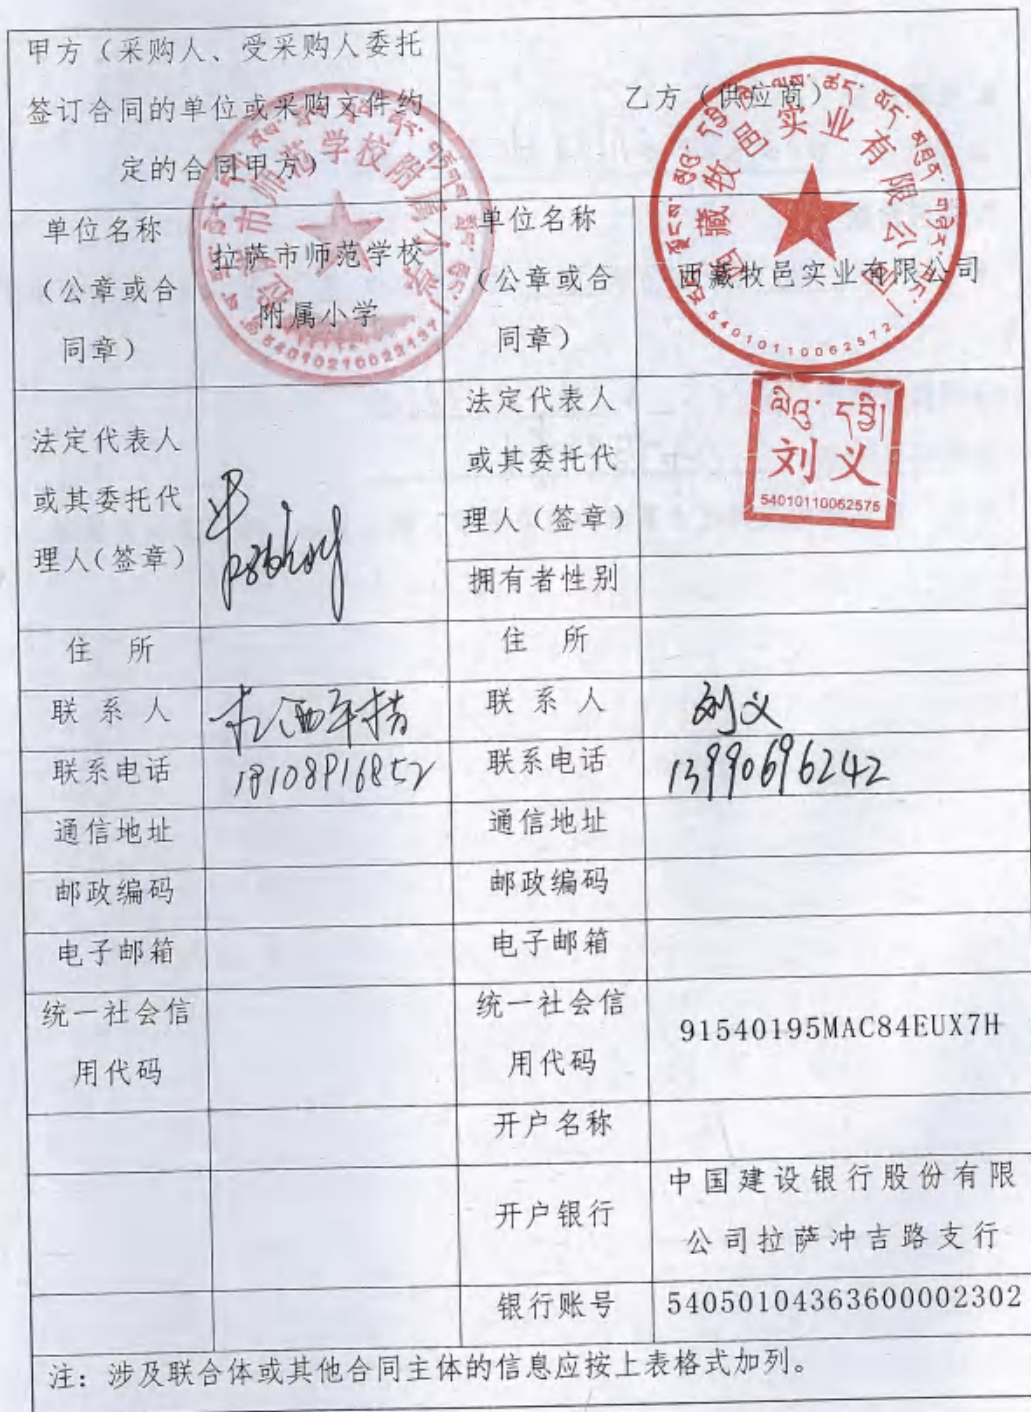 甲方（采购人、受采购人委托
签订合同的单位或采购文件约
定的合同甲方）
乙方（供应商）
单位名称
（公章或合
同章）
拉萨市师范学校
附属小学
单位名称
（公章或合
同章）
西藏牧邑实业有限公司
市师范学校附属小学
5401021002313
西藏牧邑实业有限公司
5401011006257
法定代表人
或其委托代
理人（签章）
法定代表人
或其委托代
理人（签章）
刘义
54010110062575
拥有者性别
住 所
住 所
联 系 人
联 系 人
刘义
联系电话
18108916852
联系电话
13990696242
通信地址
通信地址
邮政编码
邮政编码
电子邮箱
电子邮箱
统一社会信
用代码
统一社会信
用代码
91540195MAC84EUX7H
开户名称
开户银行
中国建设银行股份有限
公司拉萨冲吉路支行
银行账号
54050104363600002302
注：涉及联合体或其他合同主体的信息应按上表格式加列。